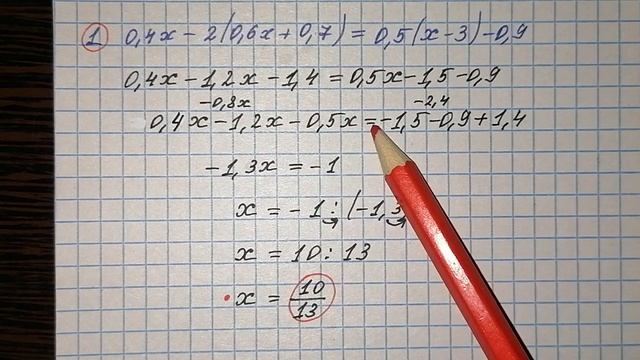 1 0,4x - 2(0,6x + 0,7) = 0,5(x - 3) - 0,9
0,4x - 1,2x - 1,4 = 0,5x - 1,5 - 0,9
-0,8x -2,4
0,4x - 1,2x - 0,5x = -1,5 - 0,9 + 1,4
-1,3x = -1
x = -1 : (-1,3
x = 10 : 13
x = 10/13